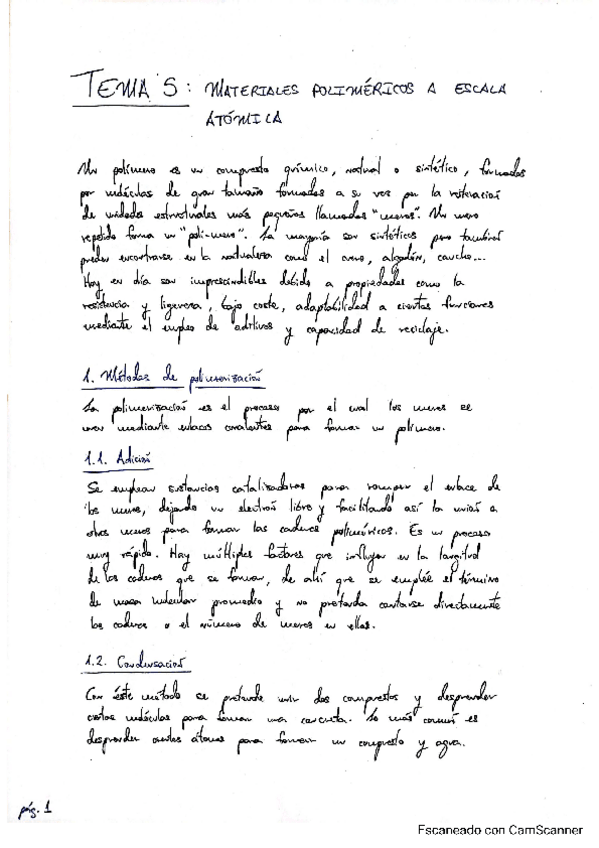 TEMA 5: MATERIALES POLIMÉRICOS A ESCALA
ATÓMICA
Un polímero es un compuesto químico, natural o sintético, formados
por moléculas de gran tamaño formados a su vez por la reiteración
de unidades estructurales más pequeñas llamadas "meros". Un mero
repetido forma un "poli-mero". La mayoría son sintéticos pero también
pueden encontrarse en la naturaleza como el , algodón, caucho...
Hoy en día son imprescindibles debido a propiedades como la
resistencia y ligereza, bajo coste, adaptabilidad a ciertas funciones
mediante el empleo de aditivos y capacidad de reciclaje.
1. Métodos de polimerización
La polimerización es el proceso por el cual los meros se
unen mediante enlaces covalentes para formar un polímero.
1.1. Adición
Se emplean sustancias catalizadoras para romper el enlace de
los meros, dejando un electrón libre y facilitando así la unión a
otros meros para formar las cadenas poliméricas. Es un proceso
muy rápido. Hay múltiples factores que influyen en la longitud
de las cadenas que se forman, de ahí que se emplée el término
de masa molecular promedio y no pretenda contarse directamente
las cadenas o el número de meros en ellas.
1.2. Condensación
Con éste método se pretende unir dos compuestos y desprender
ciertas moléculas para formar una concreta. Lo más común es
desprender ciertos átomos para formar un compuesto y agua.
pág. 1
Escaneado con CamScanner